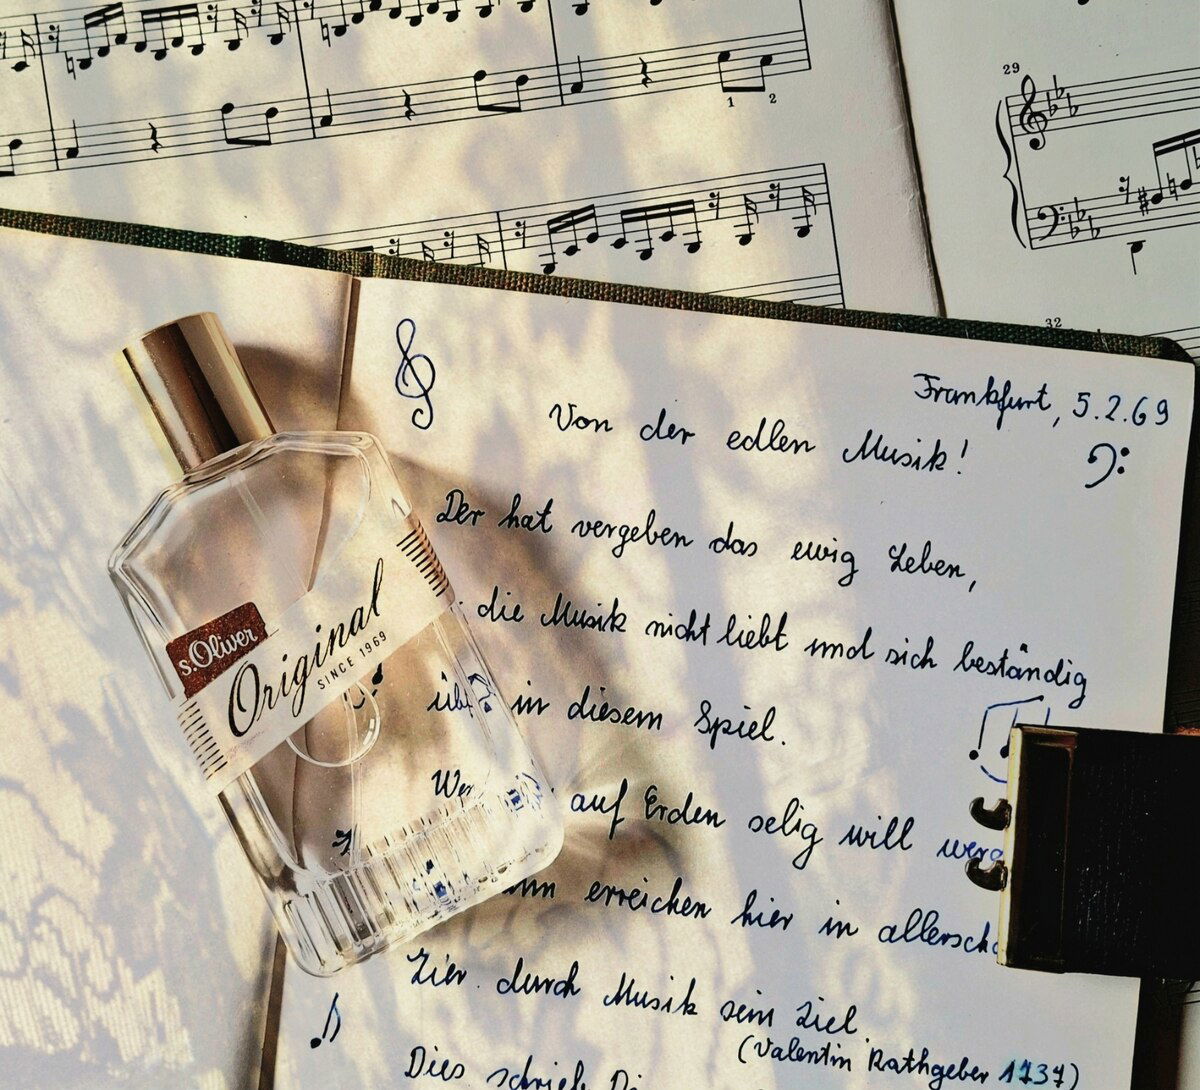 1 2
29
32
Frankfurt, 5.2.69
Von der edlen Musik!
Der hat vergeben das ewig Leben,
die Musik nicht liebt und sich beständig
in diesem Spiel.
auf Erden selig will
erreichen hier in
Zier durch Musik sein Ziel
(Valentin Rathgeber 1737)
Dies schrieb
s.Oliver
Original
SINCE 1969